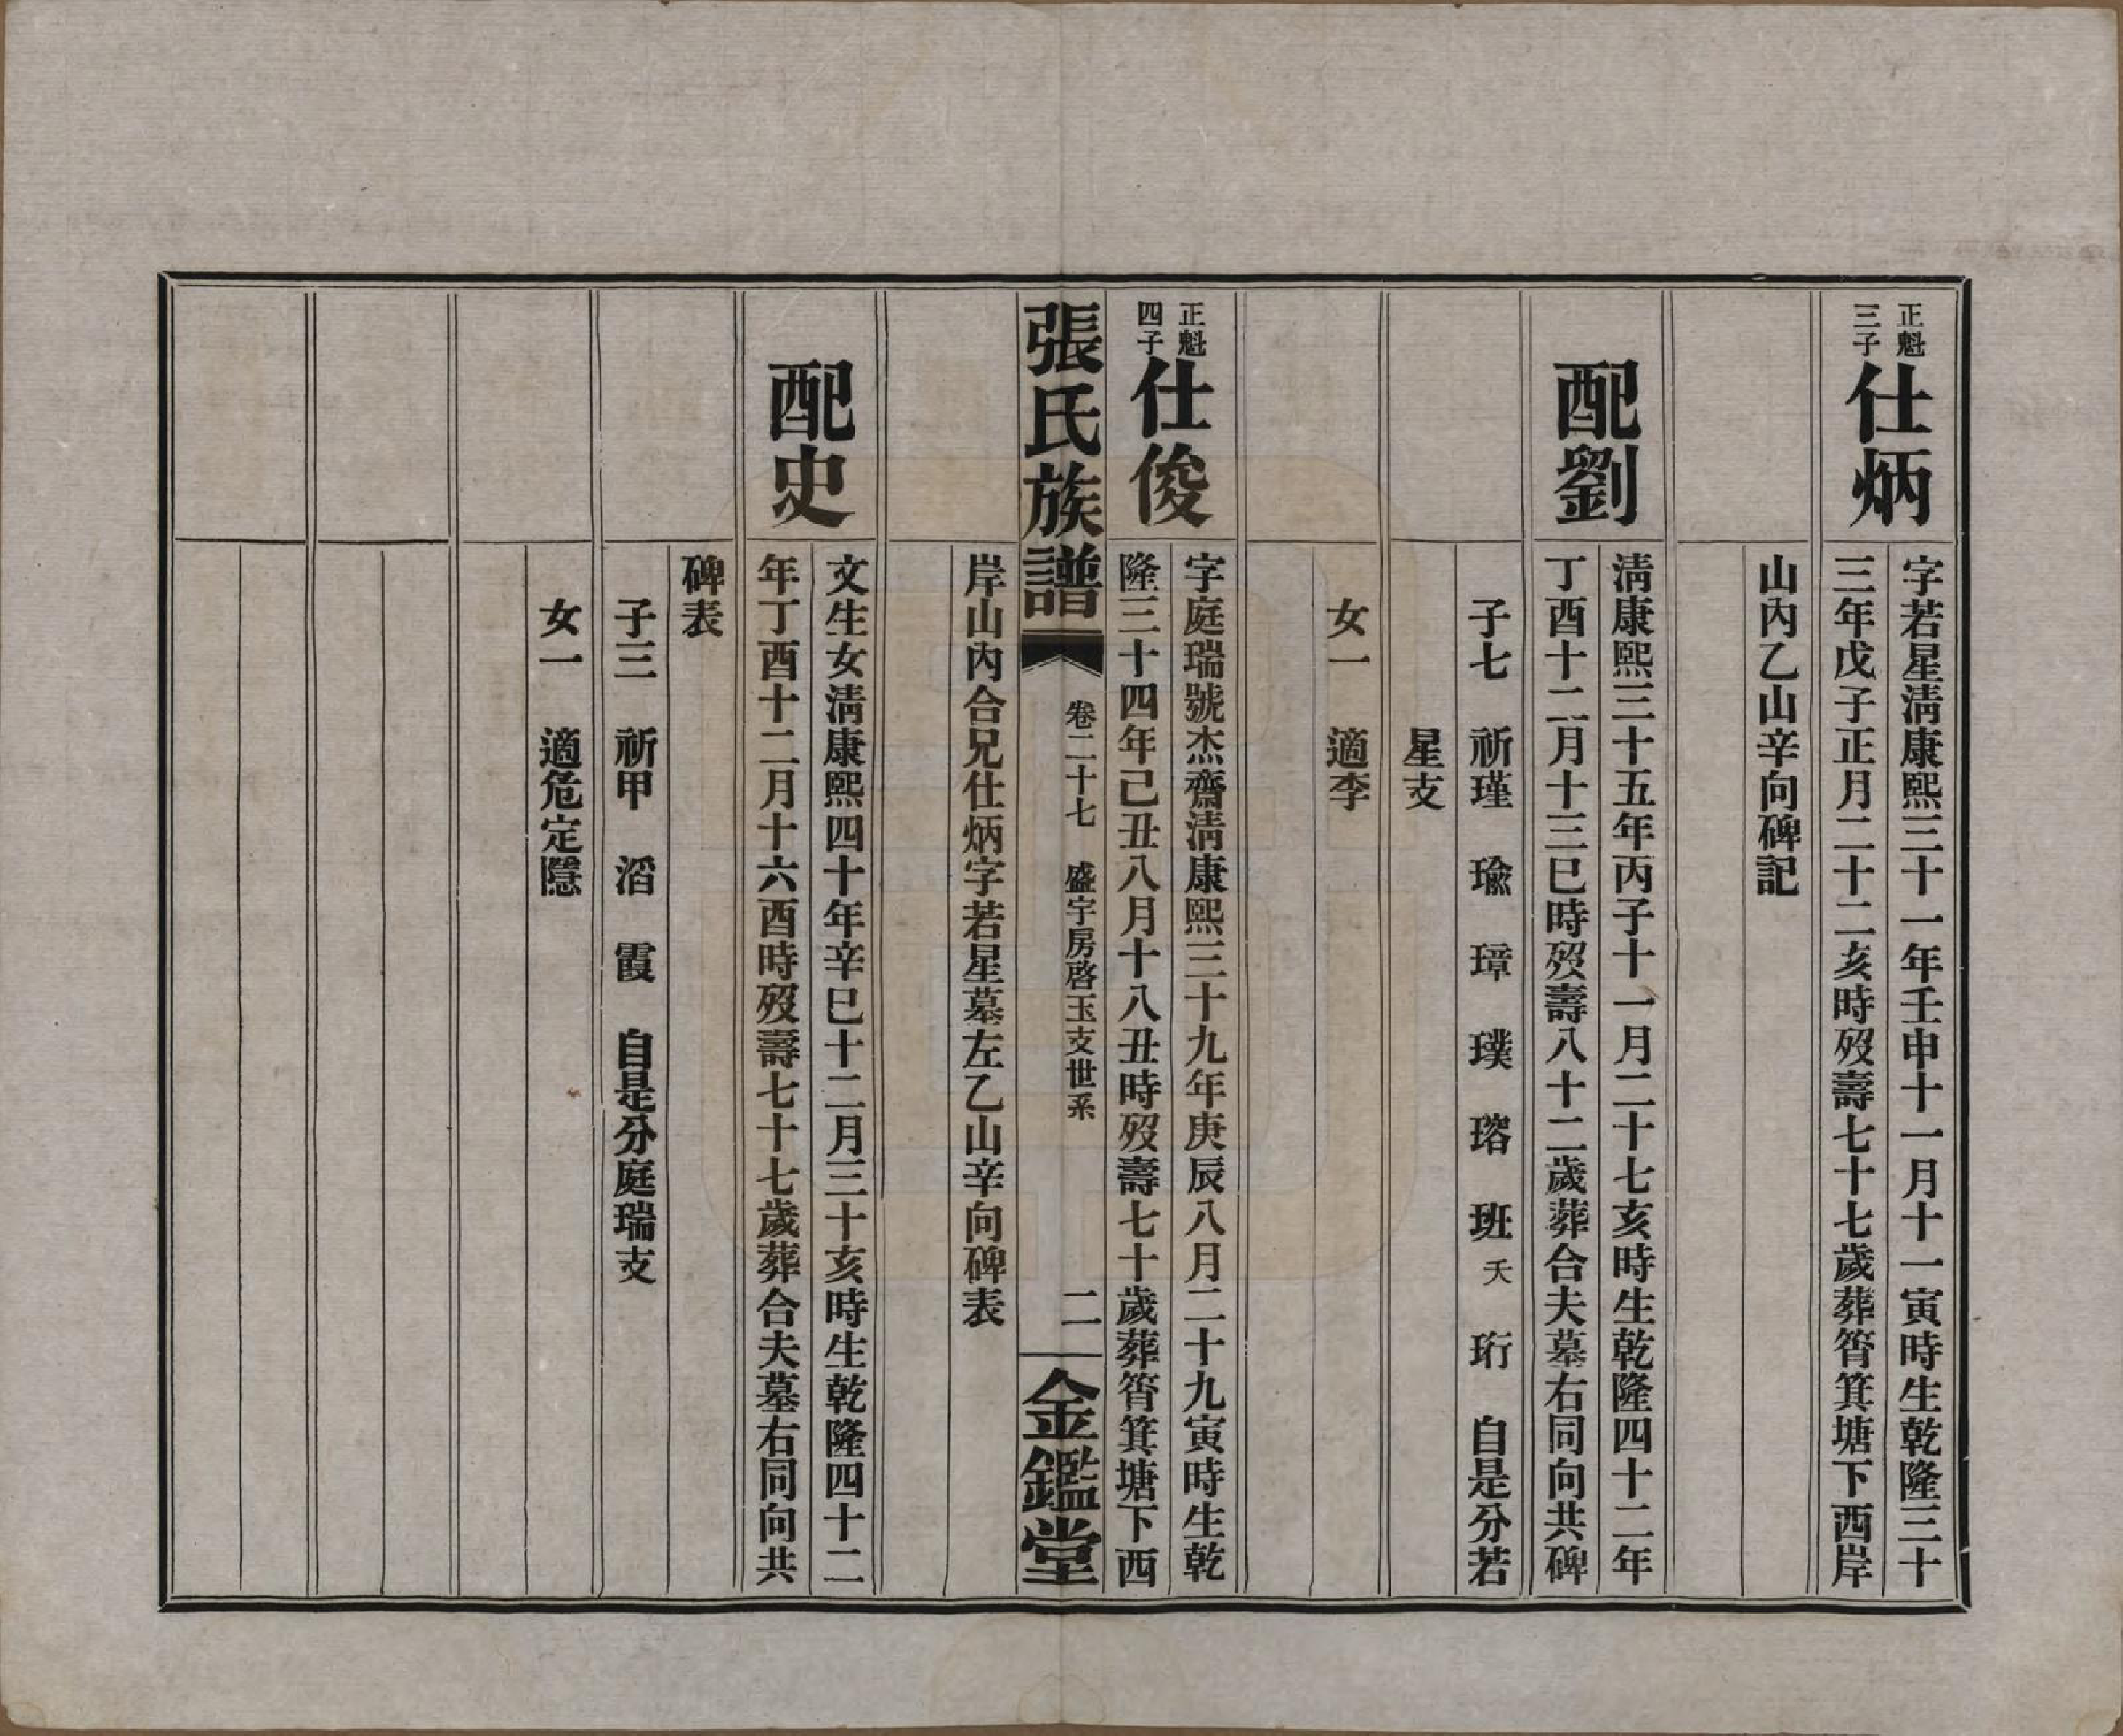 正魁
三子
仕炳
字若星淸康熙三十一年壬申十一月十一寅時生乾隆三十
三年戊子正月二十二亥時歿壽七十七歲葬筲箕塘下西岸
山內乙山辛向碑記
配劉
淸康熙三十五年丙子十一月二十七亥時生乾隆四十二年
丁酉十二月十三巳時歿壽八十二歲葬合夫墓右同向共碑
子七　祈瑾　瑜　璋　璞　瑹　班夭　珩　自是分若
星支
女一　適李
正魁
四子
仕俊
字庭瑞號杰齋淸康熙三十九年庚辰八月二十九寅時生乾
隆三十四年己丑八月十八丑時歿壽七十歲葬筲箕塘下西
張氏族譜
卷二十七　盛宇房啓玉支世系
二
金鑑堂
岸山內合兄仕炳字若星墓左乙山辛向碑表
配史
文生女淸康熙四十年辛巳十二月三十亥時生乾隆四十二
年丁酉十二月十六酉時歿壽七十七歲葬合夫墓右同向共
碑表
子三　祈甲　滔　霞　自是分庭瑞支
女一　適危定隱